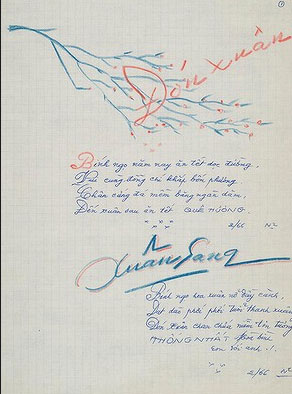 1
Đón xuân
Bính ngọ năm nay ăn tết dọc đường,
Vui cùng đồng chí khắp bốn phương
Chân cứng đá mềm băng ngàn dặm,
Đến xuân sau ăn tết QUÊ HƯƠNG
2/66 N2
Xuân Sang
Bính ngọ hoa xuân nở đầy cành,
Dạt dào phơi phới tuổi thanh xuân
Đón xuân chan chứa niềm tin tưởng
THỐNG NHẤT
Em với anh.!.
2/66 N2